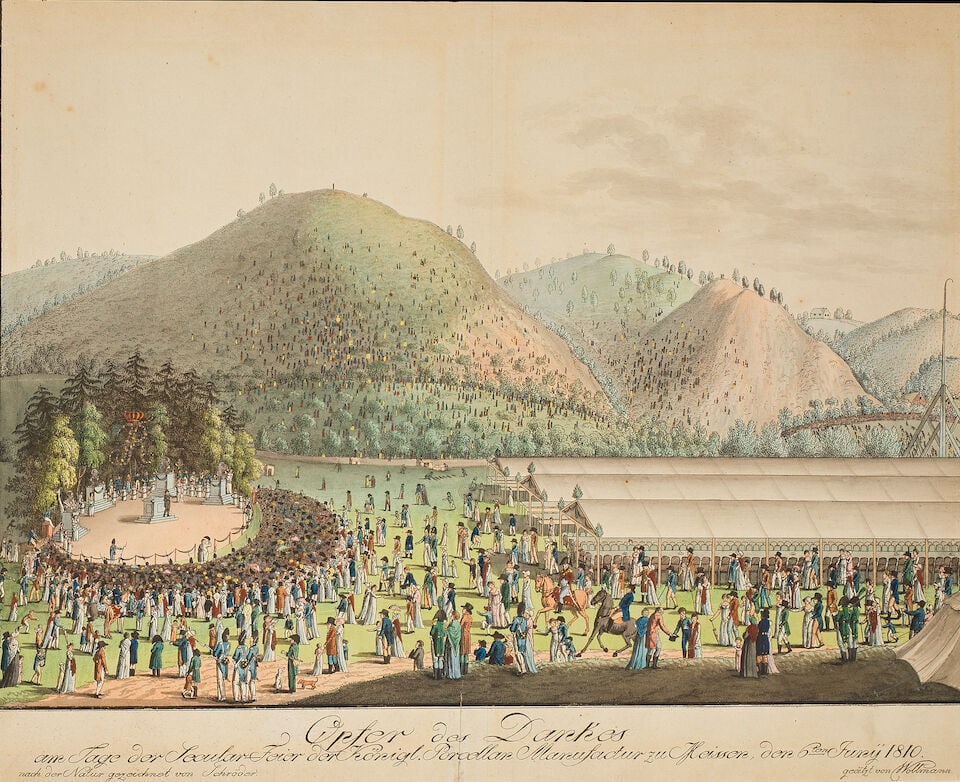 Opfer des Dankes
am Tage der Secular-Feier der Königl. Porcellan Manufactur zu Meissen, den 6ten Junij 1810.
nach der Natur gezeichnet von Schröder
geätzt von Wollmann